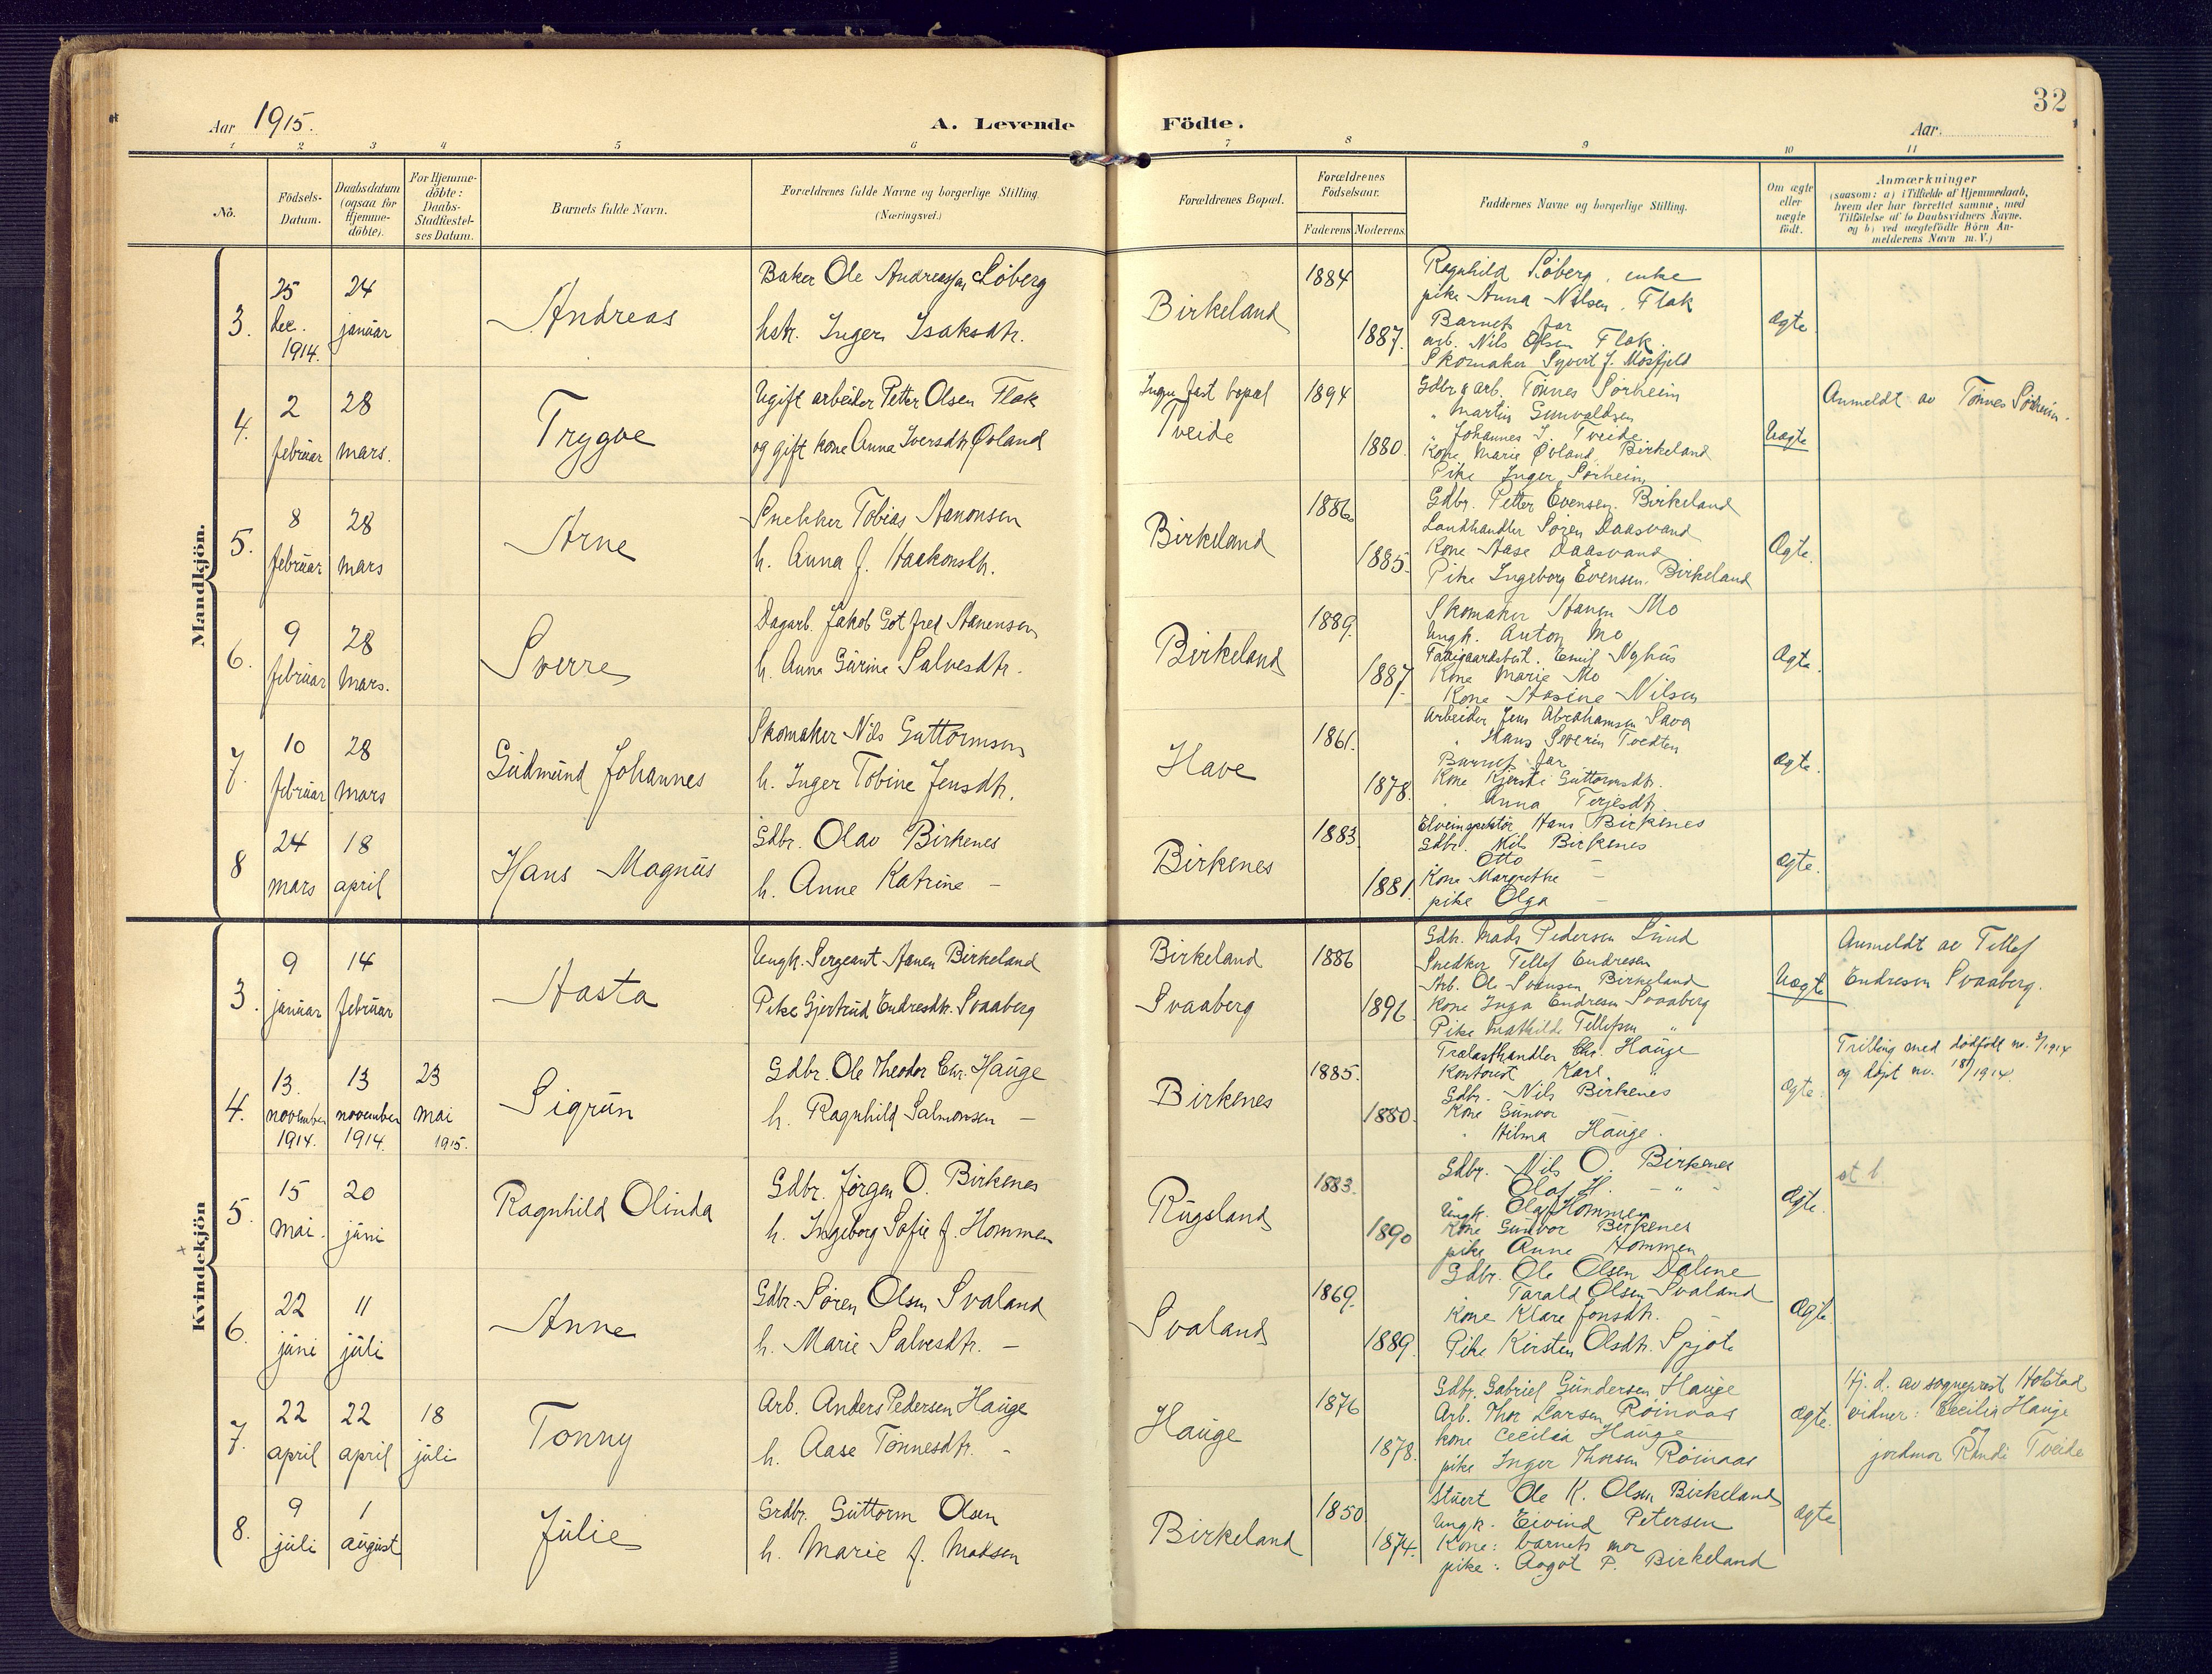 32
Aar 1915.
A. Levende Födte.
Aar
1 2 3 4 5 6 7 8 9 10 11
No.
Födsels-Datum.
Daabsdatum (ogsaa for Hjemme-döbte).
For Hjemme-döbte: Daabs-Stadfæstel-ses Datum.
Barnets fulde Navn.
Forældrenes fulde Navne og borgerlige Stilling.
(Næringsvei.)
Forældrenes Bopæl.
Forældrenes Födselsaar.
Faderens Moderens
Faddernes Navne og borgerlige Stilling.
Om ægte eller uægte födt.
Anmærkninger
(saasom: a) i Tilfælde af Hjemmedaab,
hvem der har forrettet samme, med
Tilföielse af to Daabsvidners Navne.
og b) ved uægtefödte Börn An-
melderens Navn m. V.)
Mandkjön.
3.
25 dec. 1914.
24 januar
Andreas
Baker Ole Andreassen Löberg
hstr. Inger Isaksdtr.
Birkeland
1884
1887.
Ragnhild Löberg, enke
pike Anna Nilsen, Flak
Barnets far
arb. Nils Olsen Flak.
Skomaker Syvert J. Mosfjeld
Ægte.
4.
2 februar
28 mars.
Trygve
Ugift arbeider Petter Olsen Flak
og gift kone Anna Iversdtr. Øvland
Ingen fast bopæl
Tveide
1894
1880.
Gdbr & arb. Tönnes Sörheim
" Martin Gunvaldsen
" Johannes J. Tveide
Kone Marie Øvland, Birkeland
Pike Inger Sörheim
Uægte
Anmeldt av Tönnes Sörheim.
5.
8 februar
28 mars
Arne
Snekker Tobias Aanonsen
h. Anna f. Haakonsdtr.
Birkeland
1886.
1885.
Gdbr. Petter Evensen, Birkeland
Landhandler Sören Daasvand
Kone Aase Daasvand
Pike Ingeborg Evensen, Birkeland
Ægte.
6.
9 februar
28 Mars.
Sverre
Dagarb. Jakob Gotfred Aanensen
h. Anna Gurine Salvesdtr.
Birkeland
1889.
1887.
Skomaker Aanen Mo
Ungk. Anton Mo
Emil Nyhus
Kone Marie Mo
Kone Aasine Nilsen
Ægte.
7.
10 februar
28 mars
Gudmund Johannes
Skomaker Nils Guttormsen
h. Inger Tobine Jensdtr.
Have
1861.
1878.
Arbeider Jens Abrahamsen
" Hans Severin Tvedten
Barnets far
Kone Kjersti Guttormsdtr.
" Anna Terjesdtr.
Ægte.
8
24 mars
18 april
Hans Magnus
Gdbr. Olav Birkenes
h. Anne Katrine —
Birkenes
1883.
1881.
Elveinspektör Hans Birkenes
Gdbr. Nils Birkenes
Otto —
Kone Margrethe —
pike Olga —
Ægte.
Kvindekjön
3.
9 januar
14 februar
Aasta
Ungk. Sergeant Aanen Birkeland
Pike Gjertrud Endresdtr. Svaaberg
Birkeland
Svaaberg
1886
1891.
Gdbr. Mads Pedersen Lund
Snedker Tellef Endresen
Arb. Ole Svensen Birkeland
Kone Inga Endresen Svaaberg
Pike Mathilde Tellefsen "
Uægte
Anmeldt av Tellef
Endresen Svaaberg.
4.
13. november 1914.
13 november 1914.
23 mai 1915.
Sigrun
Gdbr. Ole Theodor Chr. Hauge
h. Ragnhild Salmonsen —
Birkenes
1885.
1880.
Trælasthandler Chr. Hauge
Kontorist Karl "
Gdbr. Nils Birkenes
Kone Gunvor
" Hilma Hauge.
Ægte.
Trilling med dödfödt no. 2/1914
og döpt no. 18/1914.
5.
15 mai.
20 juni
Ragnhild Olinda
Gdbr. Jörgen O. Birkenes
h. Ingeborg Sofie f. Hommen
Rugsland
1883.
1890
Gdbr. Nils O. Birkenes
Olaf H. — " —
Ungk. Olaf Hommen
Kone Gunvor Birkenes
pike Anne Hommen
Ægte.
st b.
6.
22 juni
11 juli
Anne
Gdbr. Sören Olsen Svaland
h. Marie Salvesdtr. —
Svaland
1869.
1889.
Gdbr. Ole Olsen Dalene
Tarald Olsen Svaland
Kone Klare Jonsdtr.
Pike Kirsten Olsdtr. Spjote
Ægte
7.
22 april
22 april
18 juli
Tonny
Arb. Anders Pedersen Hauge
h. Aase Tönnesdtr. —
Hauge
1876
1878.
Gdbr. Gabriel Gundersen Hauge
Arb. Thor Larsen Röinaas
kone Cecilia Hauge
pike Inger Thorsen Röinaas
Ægte.
Hj. d. av sogneprest Holstad
vidner: Cecilia Hauge
og
jordmor Randi Tveide
8.
9 juli
1 august
Julie
Grdbr. Guttorm Olsen
h. Marie f. Madsen
Birkeland
1850
1874.
Stuert Ole K. Olsen Birkeland
Ungk. Eivind Petersen
Kone: barnets mor
pike: Aagot P. Birkeland
Ægte